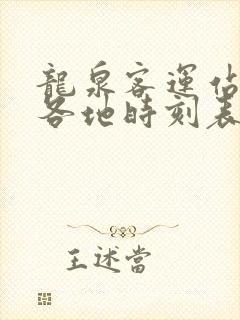 龍泉客運佔
各地時刻表
王述當